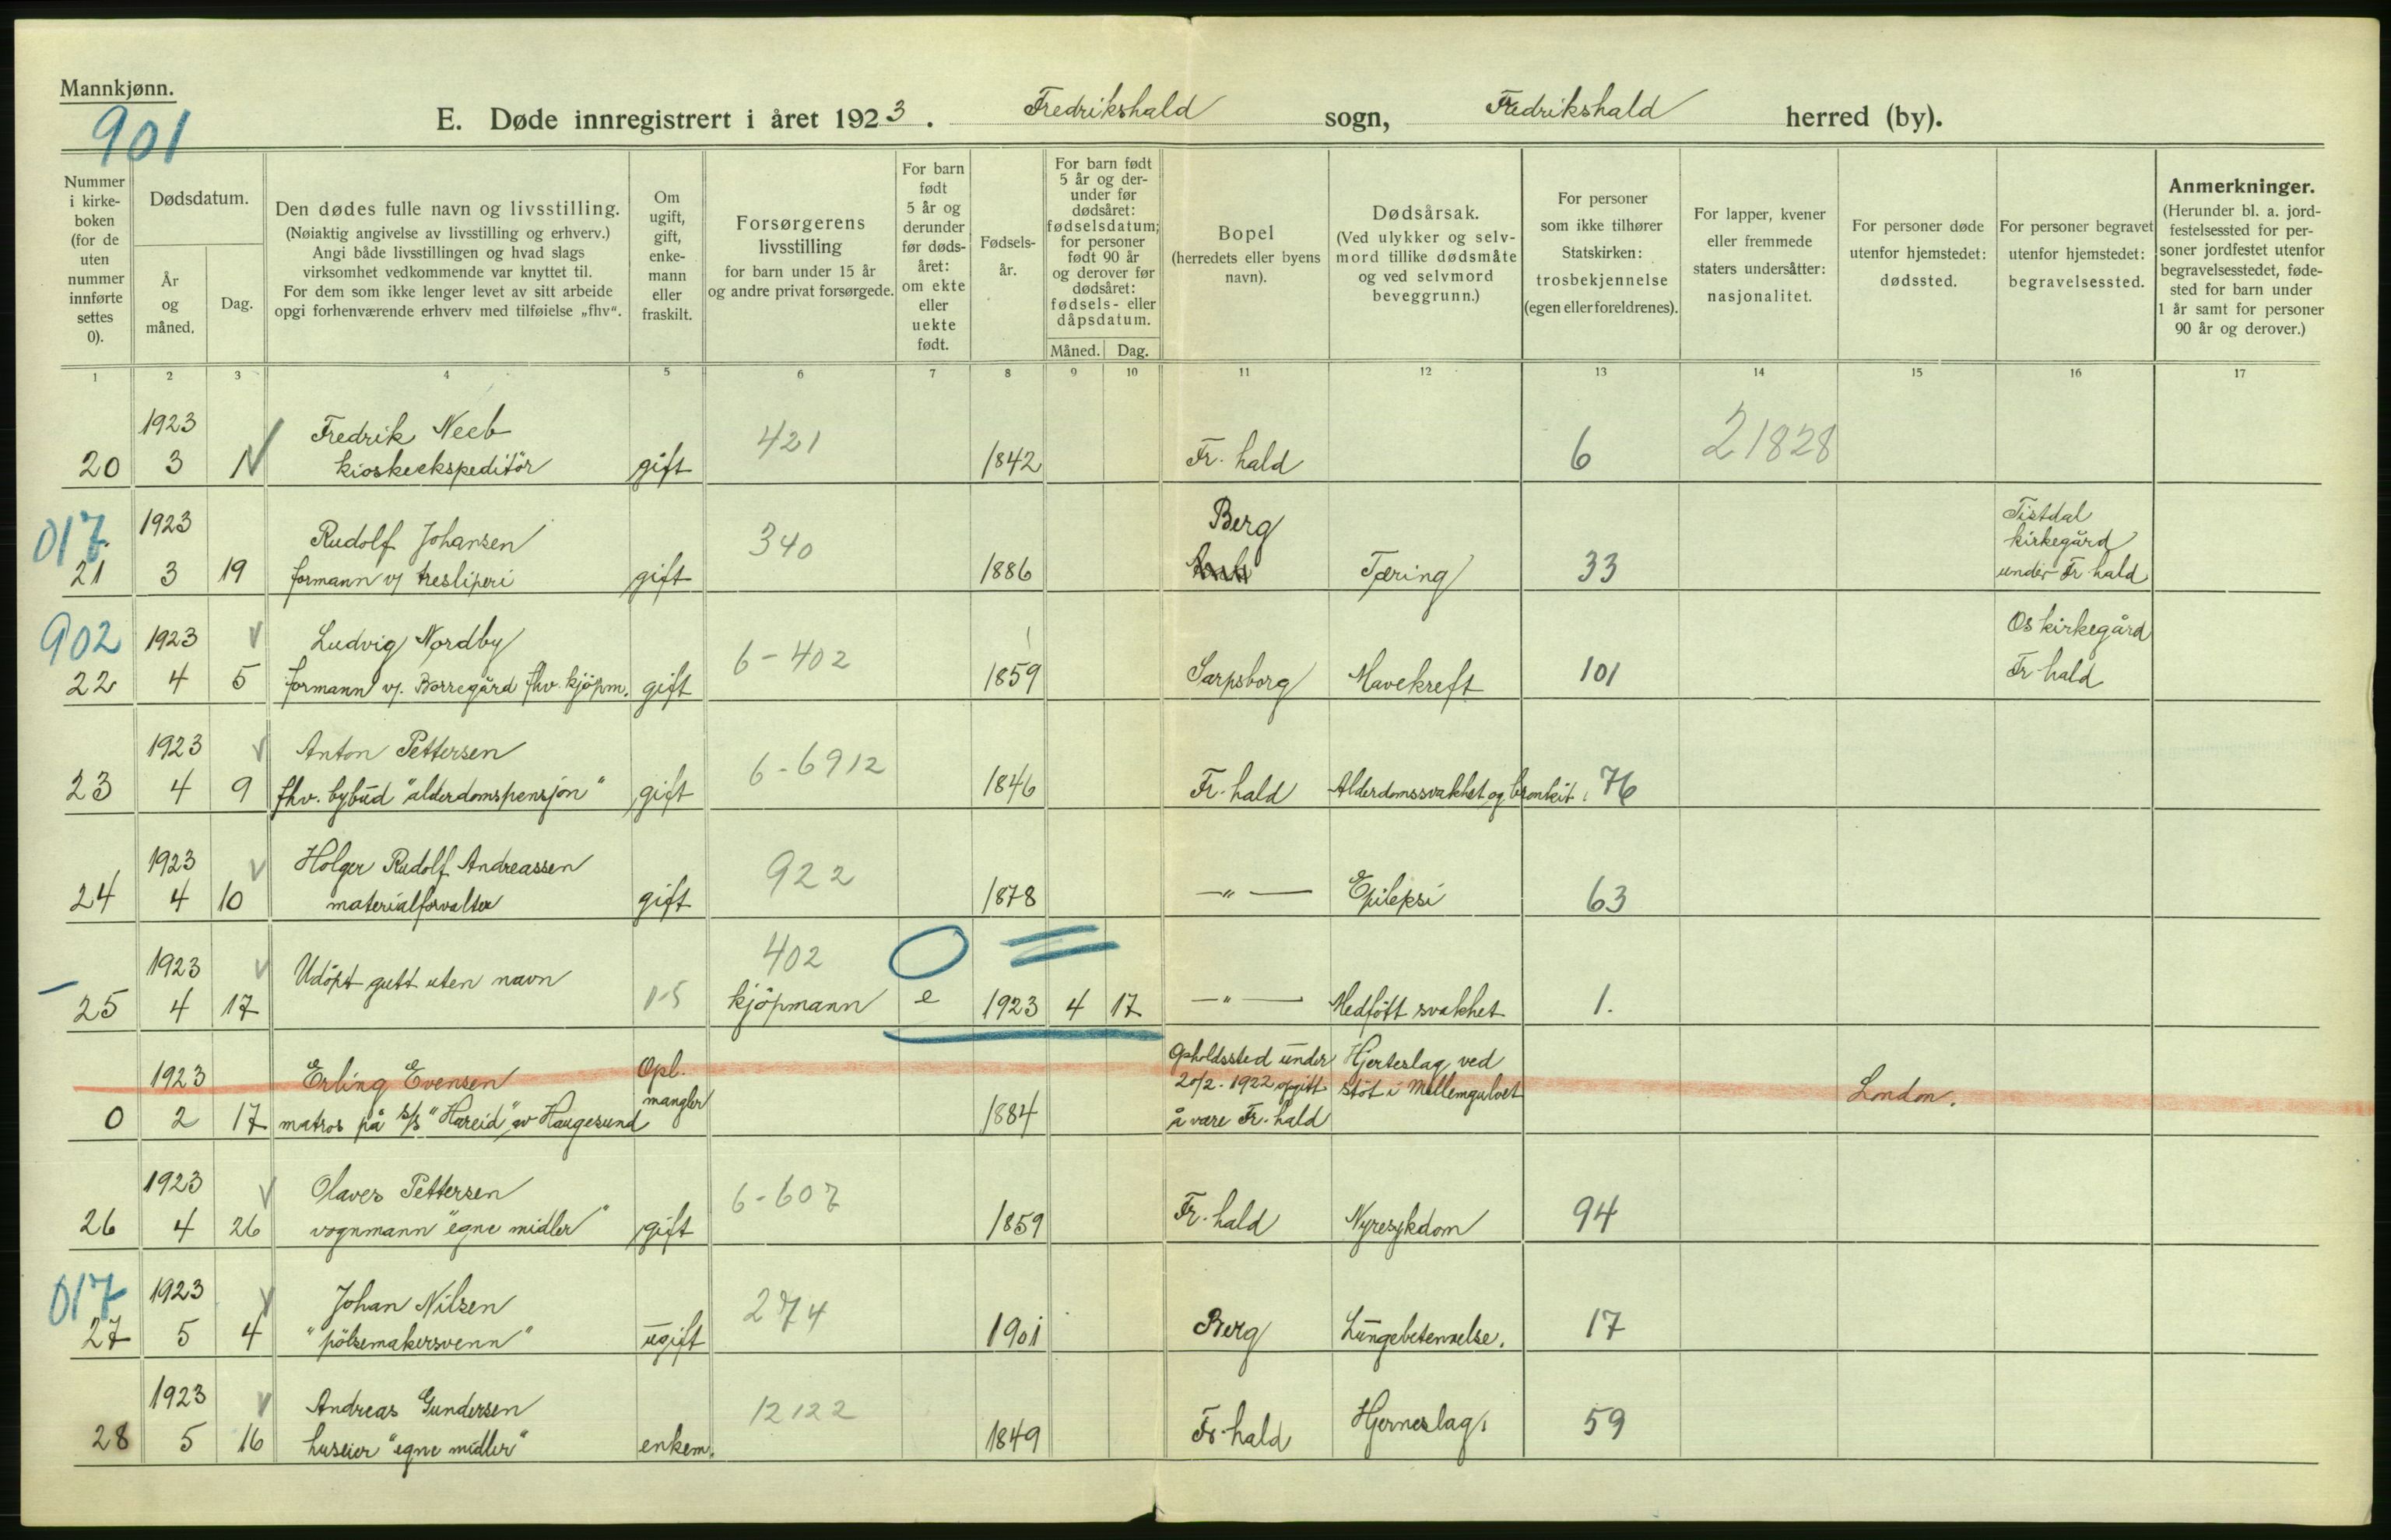 Mannkjønn.
901
E. Døde innregistrert i året 1923. Fredrikshald sogn, Fredrikshald herred (by).
Nummer i kirke- boken (for de uten nummer innførte settes 0).
Dødsdatum.
År og måned.
Dag.
Den dødes fulle navn og livsstilling.
(Nøiaktig angivelse av livsstilling og erhverv.)
Angi både livsstillingen og hvad slags
virksomhet vedkommende var knyttet til.
For dem som ikke lenger levet av sitt arbeide
opgi forhenværende erhverv med tilføielse „fhv“.
Om ugift, gift, enke- mann eller fraskilt.
Forsørgerens livsstilling
for barn under 15 år
og andre privat forsørgede.
For barn født 5 år og derunder før døds- året: om ekte eller uekte født.
Fødsels- år.
For barn født 5 år og der- under før dødsåret: fødselsdatum; for personer født 90 år og derover før dødsåret: fødsels- eller dåpsdatum.
Måned. Dag.
Bopel
(herredets eller byens navn).
Dødsårsak.
(Ved ulykker og selv-
mord tillike dødsmåte
og ved selvmord
beveggrunn.)
For personer
som ikke tilhører
Statskirken:
trosbekjennelse
(egen eller foreldrenes).
For lapper, kvener
eller fremmede
staters undersåtter:
nasjonalitet.
For personer døde
utenfor hjemstedet:
dødssted.
For personer begravet
utenfor hjemstedet:
begravelsessted.
Anmerkninger.
(Herunder bl. a. jord-
festelsessted for per-
soner jordfestet utenfor
begravelsesstedet, føde-
sted for barn under
1 år samt for personer
90 år og derover.)
1 2 3 4 5 6 7 8 9 10 11 12 13 14 15 16 17
1923 Fredrik Neeb 421 21828
20 3 1 kioskekspeditör gift 1842 Fr. hald 6
017 1923 Rudolf Johansen 340 Berg Tistdal
kirkegård
21 3 19 formann v/ tresliperi gift 1886 Tæring 33 under Fr hald
902 1923 Ludvig Nordby 6-402 Os kirkegård
22 4 5 formann v/. Borregård fhv. kjöpm. gift 1859 Sarpsborg Mavekreft 101 Fr hald
1923 Anton Pettersen 6-6912
23 4 9 fhv. bybud "alderdomspensjon" gift 1846 Fr. hald Alderdomssvakhet og bronkit. 76
1923 Holger Rudolf Andreassen 922
24 4 10 materialforvalter gift 1878 —"— Epilepsi 63
1923 Udöpt gutt uten navn 402 0 =
25 4 17 1-5 kjöpmann e 1923 4 17 —"— Medfött svakhet 1.
1923 Erling Evensen Opl. Opholdssted under Hjerteslag ved
mangler 20/2-1922 opgitt stöt i Mellemgulvet London.
0 2 17 matros på s/s "Hareid" av Haugesund 1884 å være Fr. hald
1923 Olaves Pettersen 6-607
26 4 26 vognmann "egne midler" gift 1859 Fr. hald Nyresykdom 94
017 1923 Johan Nilsen 274
27 5 4 "pölsemakersvenn" ugift 1901 Berg Lungebetennelse. 17
1923 Andreas Gundersen 12122
28 5 16 huseier "egne midler" enkem. 1849 Fr. hald Hjerneslag. 59